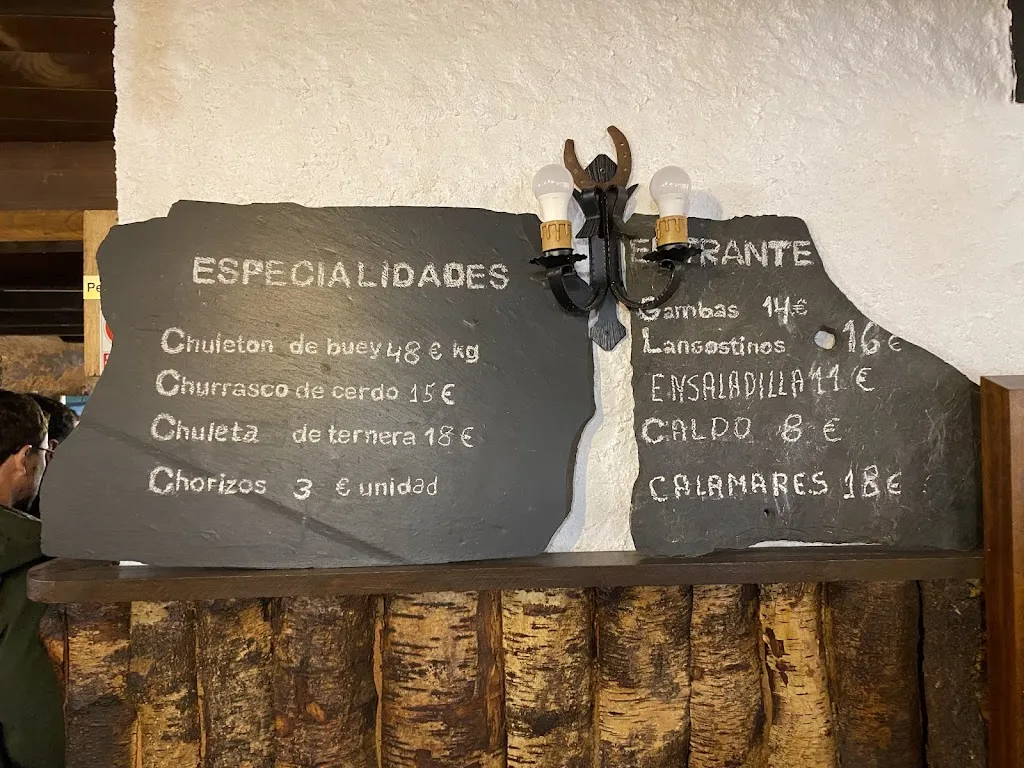 ESPECIALIDADES
Chuleton de buey 48 € kg
Churrasco de cerdo 15 €
Chuleta de ternera 18 €
Chorizos 3 € unidad
Gambas 14 €
Langostinos 16 €
ENSALADILLA 11 €
CALDO 8 €
CALAMARES 18 €